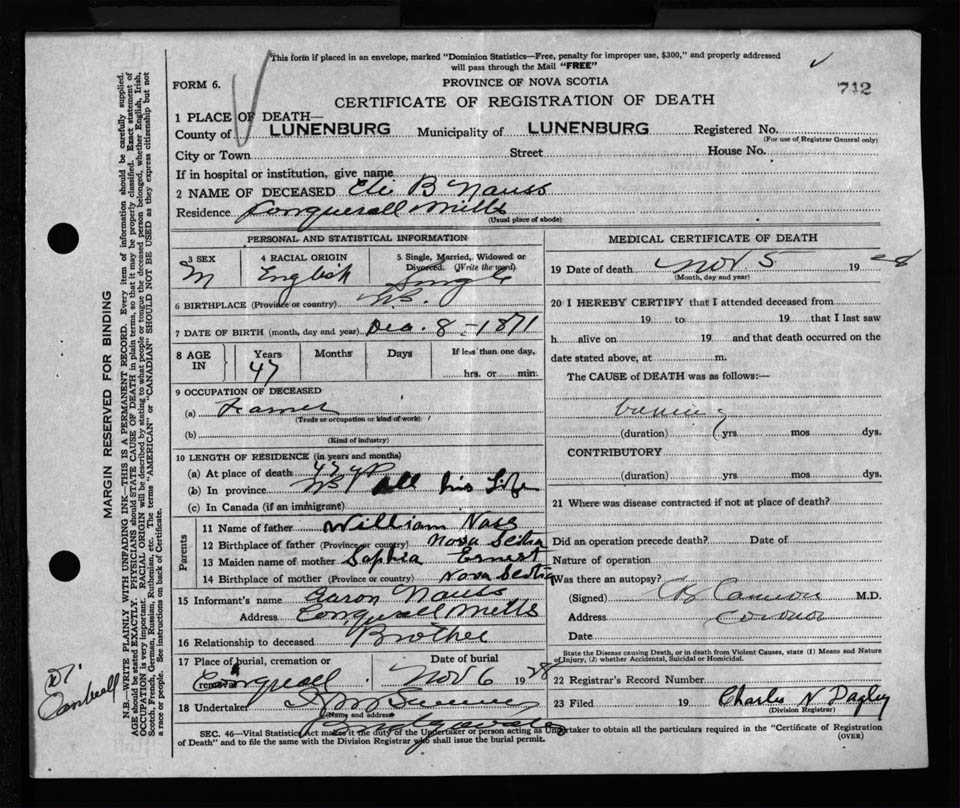 This form if placed in an envelope, marked "Dominion Statistics—Free, penalty for improper use, $300," and properly addressed
will pass through the Mail "FREE"
742
FORM 6.
PROVINCE OF NOVA SCOTIA
CERTIFICATE OF REGISTRATION OF DEATH
1 PLACE OF DEATH—
County of LUNENBURG Municipality of LUNENBURG Registered No.
(For use of Registrar General only)
City or Town Street House No.
If in hospital or institution, give name
2 NAME OF DECEASED Eli B Nauss
Residence Conquerall Mills
(Usual place of abode)
PERSONAL AND STATISTICAL INFORMATION
3 SEX 4 RACIAL ORIGIN 5 Single, Married, Widowed or
Divorced. (Write the word)
M English Single
6 BIRTHPLACE (Province or country) N.S.
7 DATE OF BIRTH (month, day and year) Dec. 8 - 1871
8 AGE IN Years Months Days If less than one day,
47 hrs. or min.
9 OCCUPATION OF DECEASED
(a) Farmer
(Trade or occupation or kind of work)
(b)
(Kind of industry)
10 LENGTH OF RESIDENCE (in years and months)
(a) At place of death 47 yrs
(b) In province NS all his Life
(c) In Canada (if an immigrant)
Parents
11 Name of father William Nass
12 Birthplace of father (Province or country) Nova Scotia
13 Maiden name of mother Sophia Ernest
14 Birthplace of mother (Province or country) Nova Scotia
15 Informant's name Aaron Nauss
Address Conquerall Mills
16 Relationship to deceased Brother
17 Place of burial, cremation or removal Date of burial
Conquerall Nov 6 1928
18 Undertaker
(Name and address)
MEDICAL CERTIFICATE OF DEATH
19 Date of death Nov 5 19 28
(Month, day and year)
20 I HEREBY CERTIFY that I attended deceased from
19 to 19 that I last saw
h alive on 19 and that death occurred on the
date stated above, at m.
The CAUSE of DEATH was as follows:—
(duration) yrs mos dys.
CONTRIBUTORY
(duration) yrs mos dys.
21 Where was disease contracted if not at place of death?
Did an operation precede death? Date of
Nature of operation
Was there an autopsy?
(Signed) M.D.
Address Coroner
Date
State the Disease causing Death, or in death from Violent Causes, state (1) Means and Nature
of Injury, (2) whether Accidental, Suicidal or Homicidal.
22 Registrar's Record Number
23 Filed 19 Charles N Dagley
(Division Registrar)
SEC. 46—Vital Statistics Act makes it the duty of the Undertaker or person acting as Undertaker to obtain all the particulars required in the "Certificate of Registration
of Death" and to file the same with the Division Registrar who shall issue the burial permit.
(OVER)
MARGIN RESERVED FOR BINDING
N.B.—WRITE PLAINLY WITH UNFADING INK—THIS IS A PERMANENT RECORD. Every item of information should be carefully supplied.
AGE should be stated EXACTLY. PHYSICIANS should STATE CAUSE OF DEATH in plain terms, so that it may be properly classified. Exact statement of
OCCUPATION is very important. RACIAL ORIGIN will be described by stating to what people or tongue the deceased person belonged, whether English, Irish,
Scotch, French, German, Russian, Ruthenian, etc. The terms "AMERICAN" or "CANADIAN" SHOULD NOT BE USED as they express citizenship but not
a race or people. See instructions on back of Certificate.